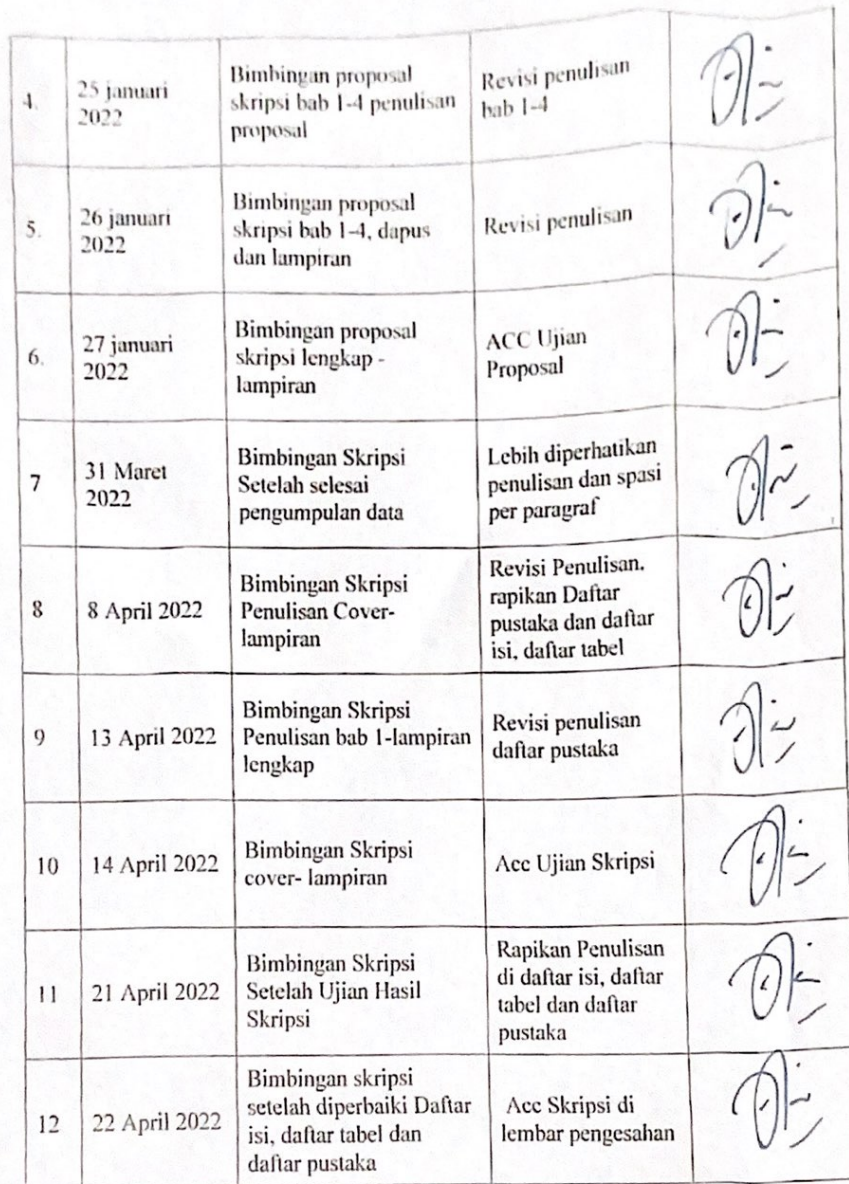 4.
25 januari
2022
Bimbingan proposal
skripsi bab 1-4 penulisan
proposal
Revisi penulisan
bab 1-4
5.
26 januari
2022
Bimbingan proposal
skripsi bab 1-4, dapus
dan lampiran
Revisi penulisan
6.
27 januari
2022
Bimbingan proposal
skripsi lengkap -
lampiran
ACC Ujian
Proposal
7
31 Maret
2022
Bimbingan Skripsi
Setelah selesai
pengumpulan data
Lebih diperhatikan
penulisan dan spasi
per paragraf
8
8 April 2022
Bimbingan Skripsi
Penulisan Cover-
lampiran
Revisi Penulisan.
rapikan Daftar
pustaka dan daftar
isi, daftar tabel
9
13 April 2022
Bimbingan Skripsi
Penulisan bab 1-lampiran
lengkap
Revisi penulisan
daftar pustaka
10
14 April 2022
Bimbingan Skripsi
cover- lampiran
Acc Ujian Skripsi
11
21 April 2022
Bimbingan Skripsi
Setelah Ujian Hasil
Skripsi
Rapikan Penulisan
di daftar isi, daftar
tabel dan daftar
pustaka
12
22 April 2022
Bimbingan skripsi
setelah diperbaiki Daftar
isi, daftar tabel dan
daftar pustaka
Acc Skripsi di
lembar pengesahan